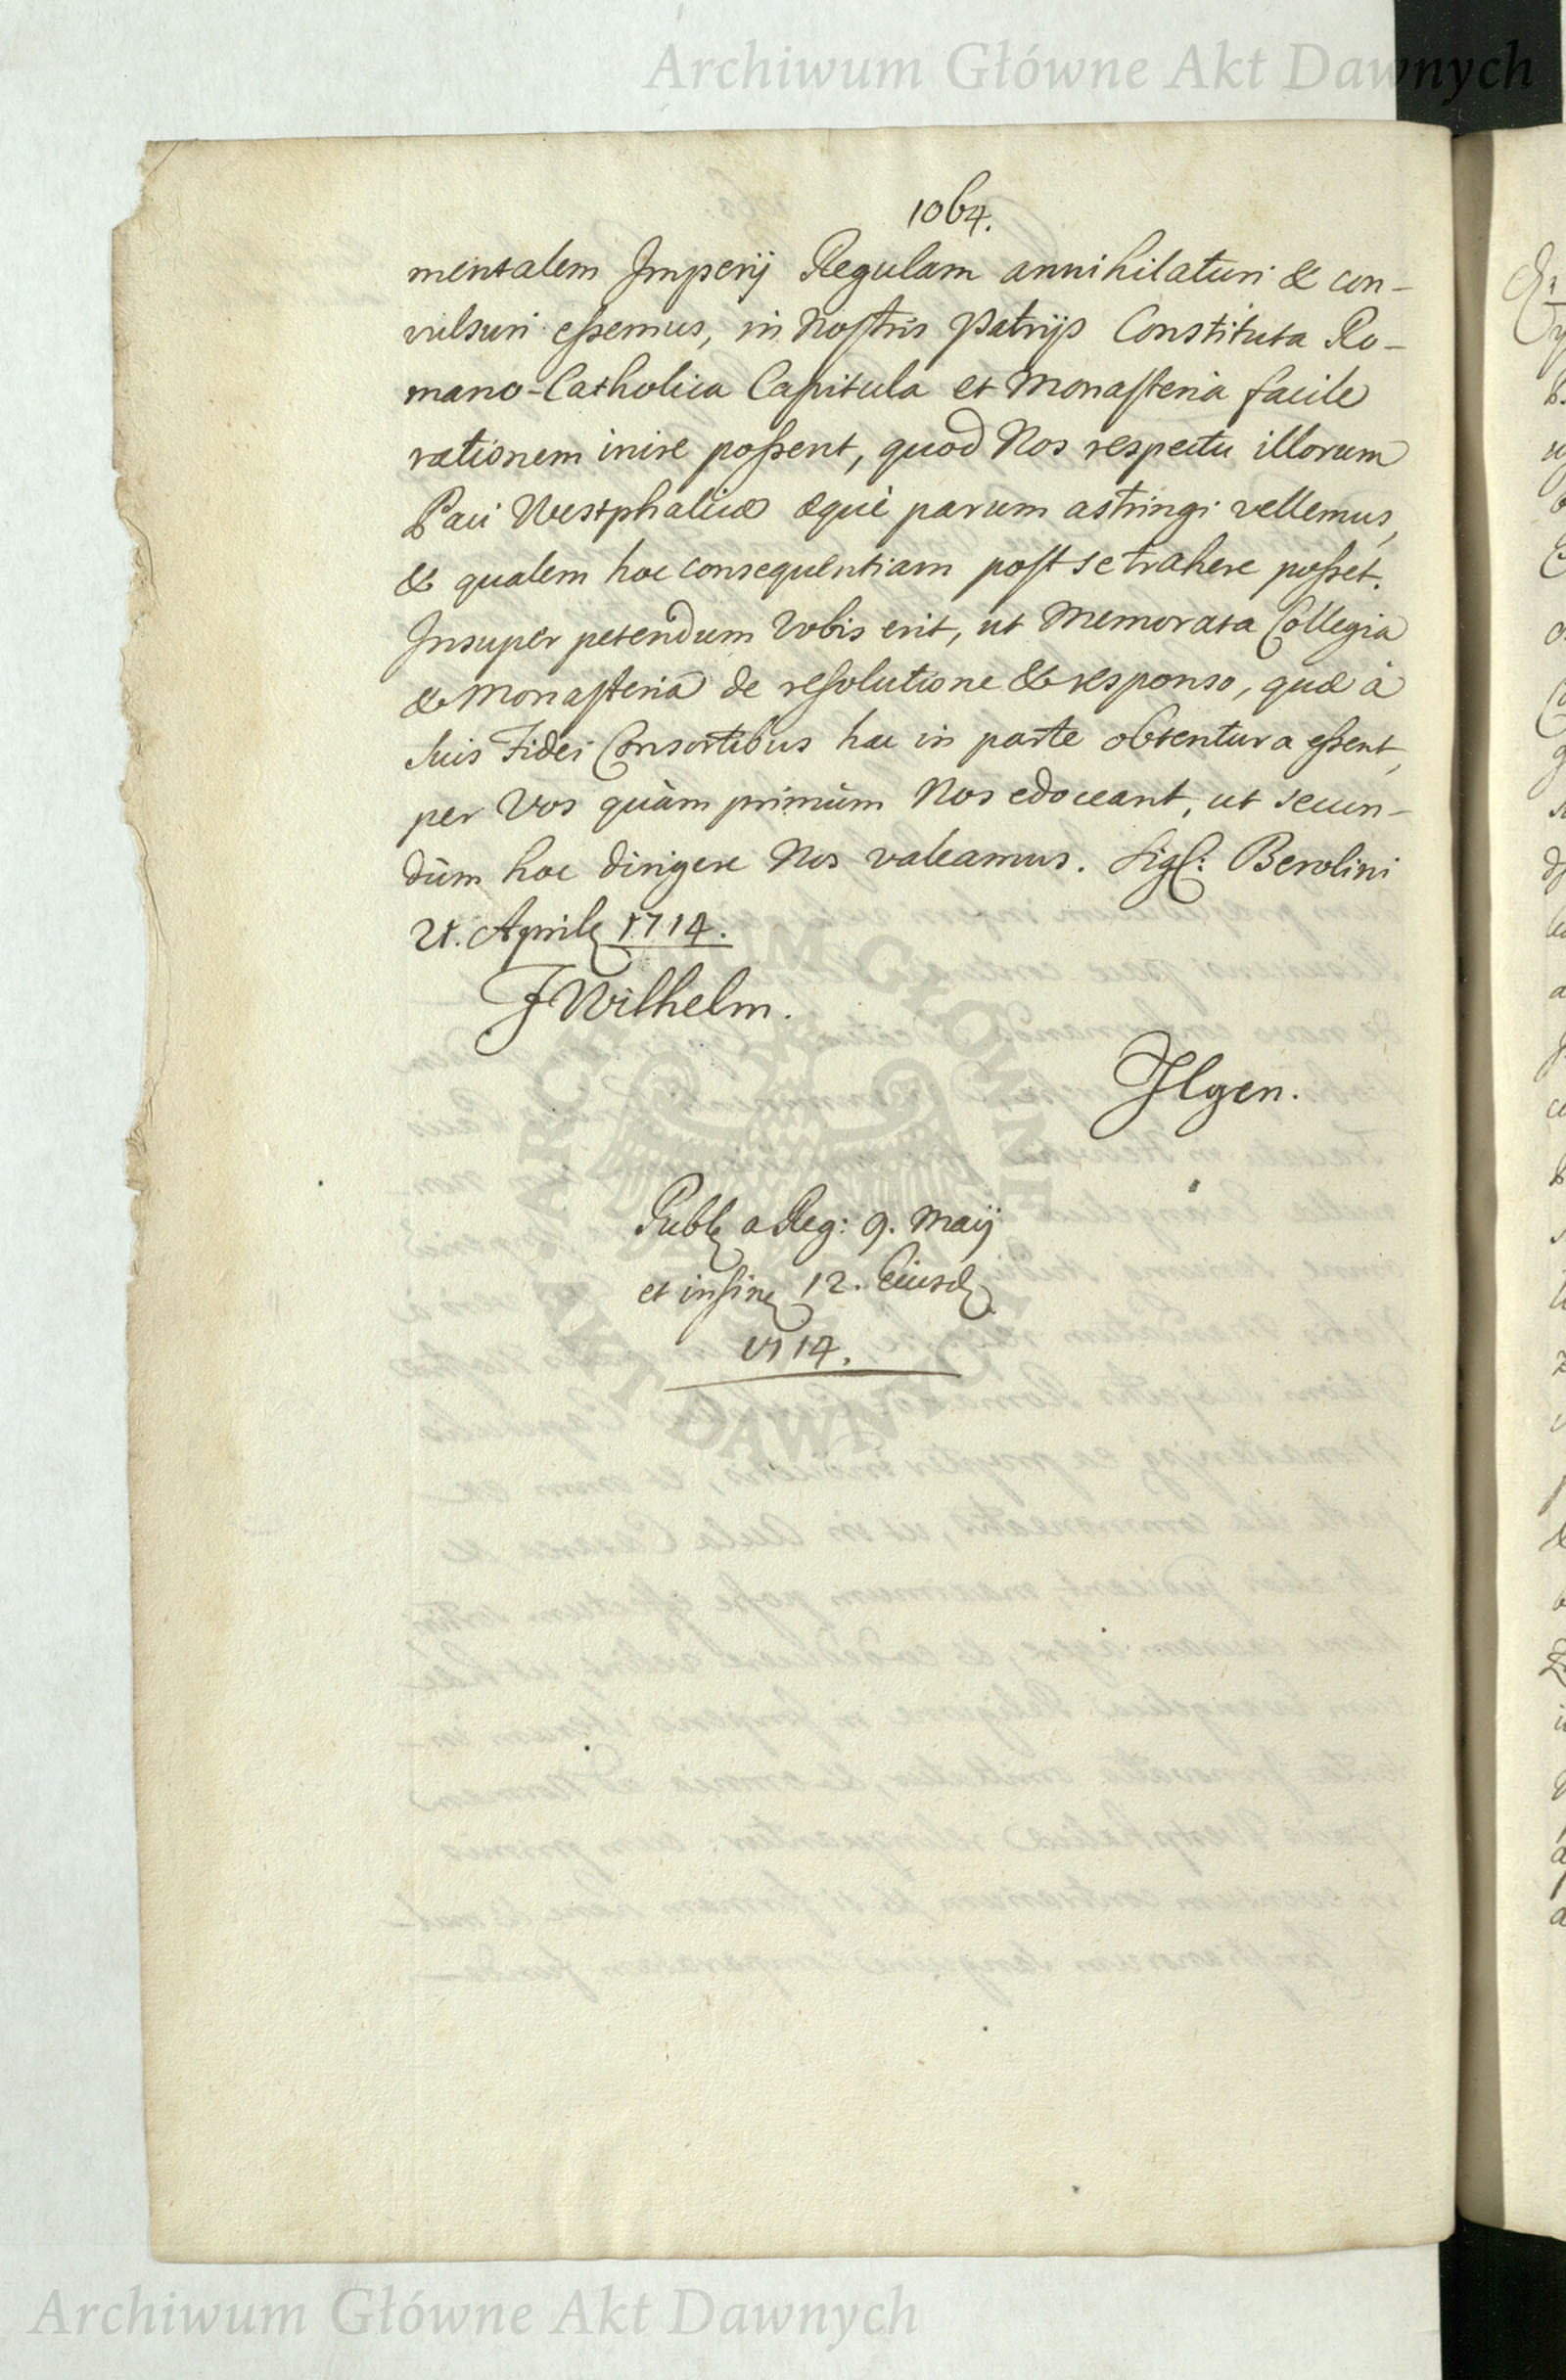 Archiwum Główne Akt Dawnych
1064.
mentalem Imperij Regulam annihilaturi & con-
vulsuri essemus, in Nostris Patrijs Constituta Ro-
mano-Catholica Capitula et Monasteria facile
rationem inire possent, quod Nos respectu illorum
Paci Westphalicæ æquè parum astringi vellemus,
& qualem hoc consequentiam post se trahere posset.
Insupèr petendum Vobis erit, ut Memorata Collegia
& Monasteria de resolutione & responso, quæ à
suis Fidei Consortibus hac in parte obtentura essent,
per Vos quàm primùm Nos edoceant, ut secun-
dùm hoc dirigere Nos valeamus. Sigl: Berolini
21. April 1714.
F Wilhelm.
Ilgen.
Publ a Reg: 9. Maij
et insin 12. Eiusd
1714.
ARCHIWUM GŁÓWNE AKT DAWNYCH
Archiwum Główne Akt Dawnych